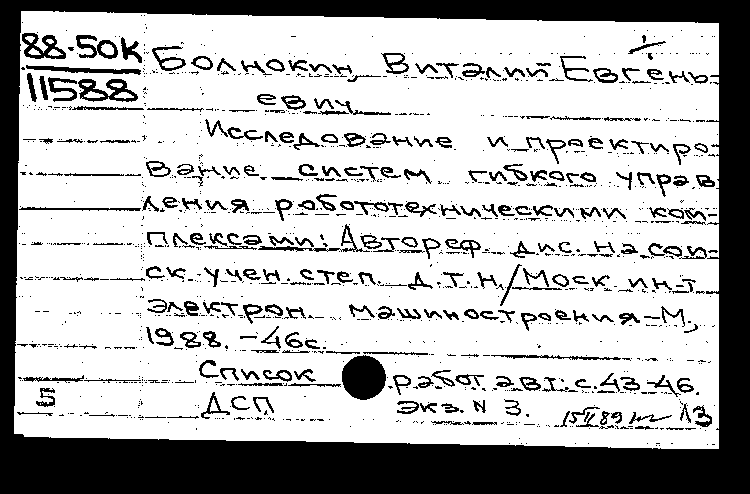 88-50К
11588
Болнокин, Виталий Евгень-
евич.
Исследование и проектиро-
вание систем гибкого управ
ления робототехническими ком-
плексами: Автореф. дис. на соп-
ск. учен. степ. д.т.н./Моск ин-т
электрон. машиностроения-М.,
1988. -46с.
Список работ авт.: с.43-46.
5 ДСП экз. N 3. 15 II 89 ЛЗ